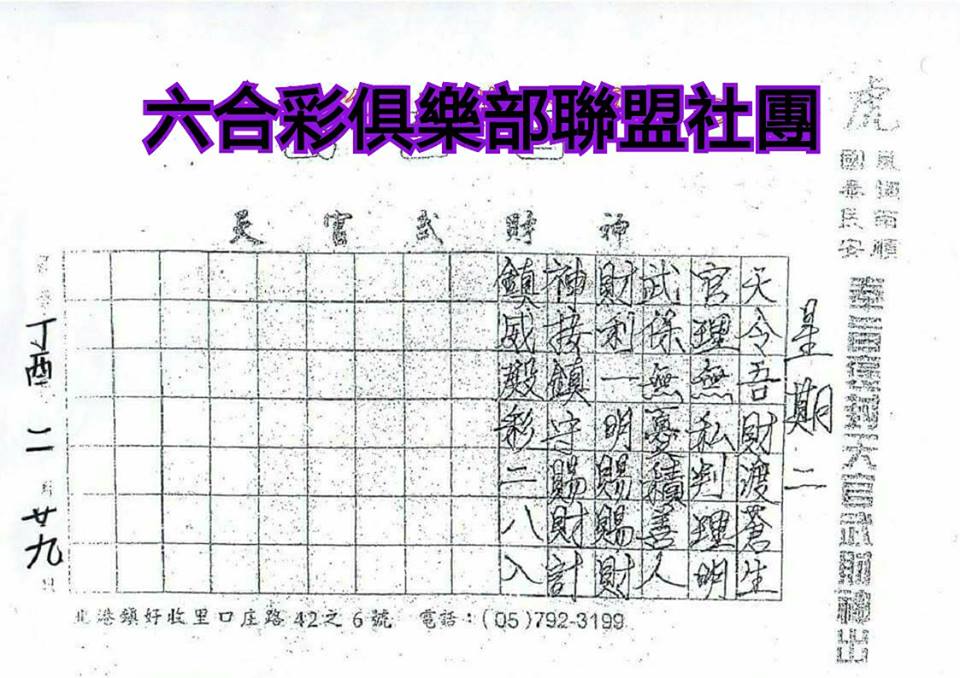 六合彩俱樂部聯盟社團
虎
風調雨順
國泰民安
大官武財神出
星期二
天官武財神
天令吾財渡蒼生
官理無私判理明
武保無憂積善人
財利一明賜賜財
神接鎮守賜財計
鎮威殿彩二八入
丁酉二月廿九日
北港鎮好收里口庄路42之6號 電話：(05)792-3199